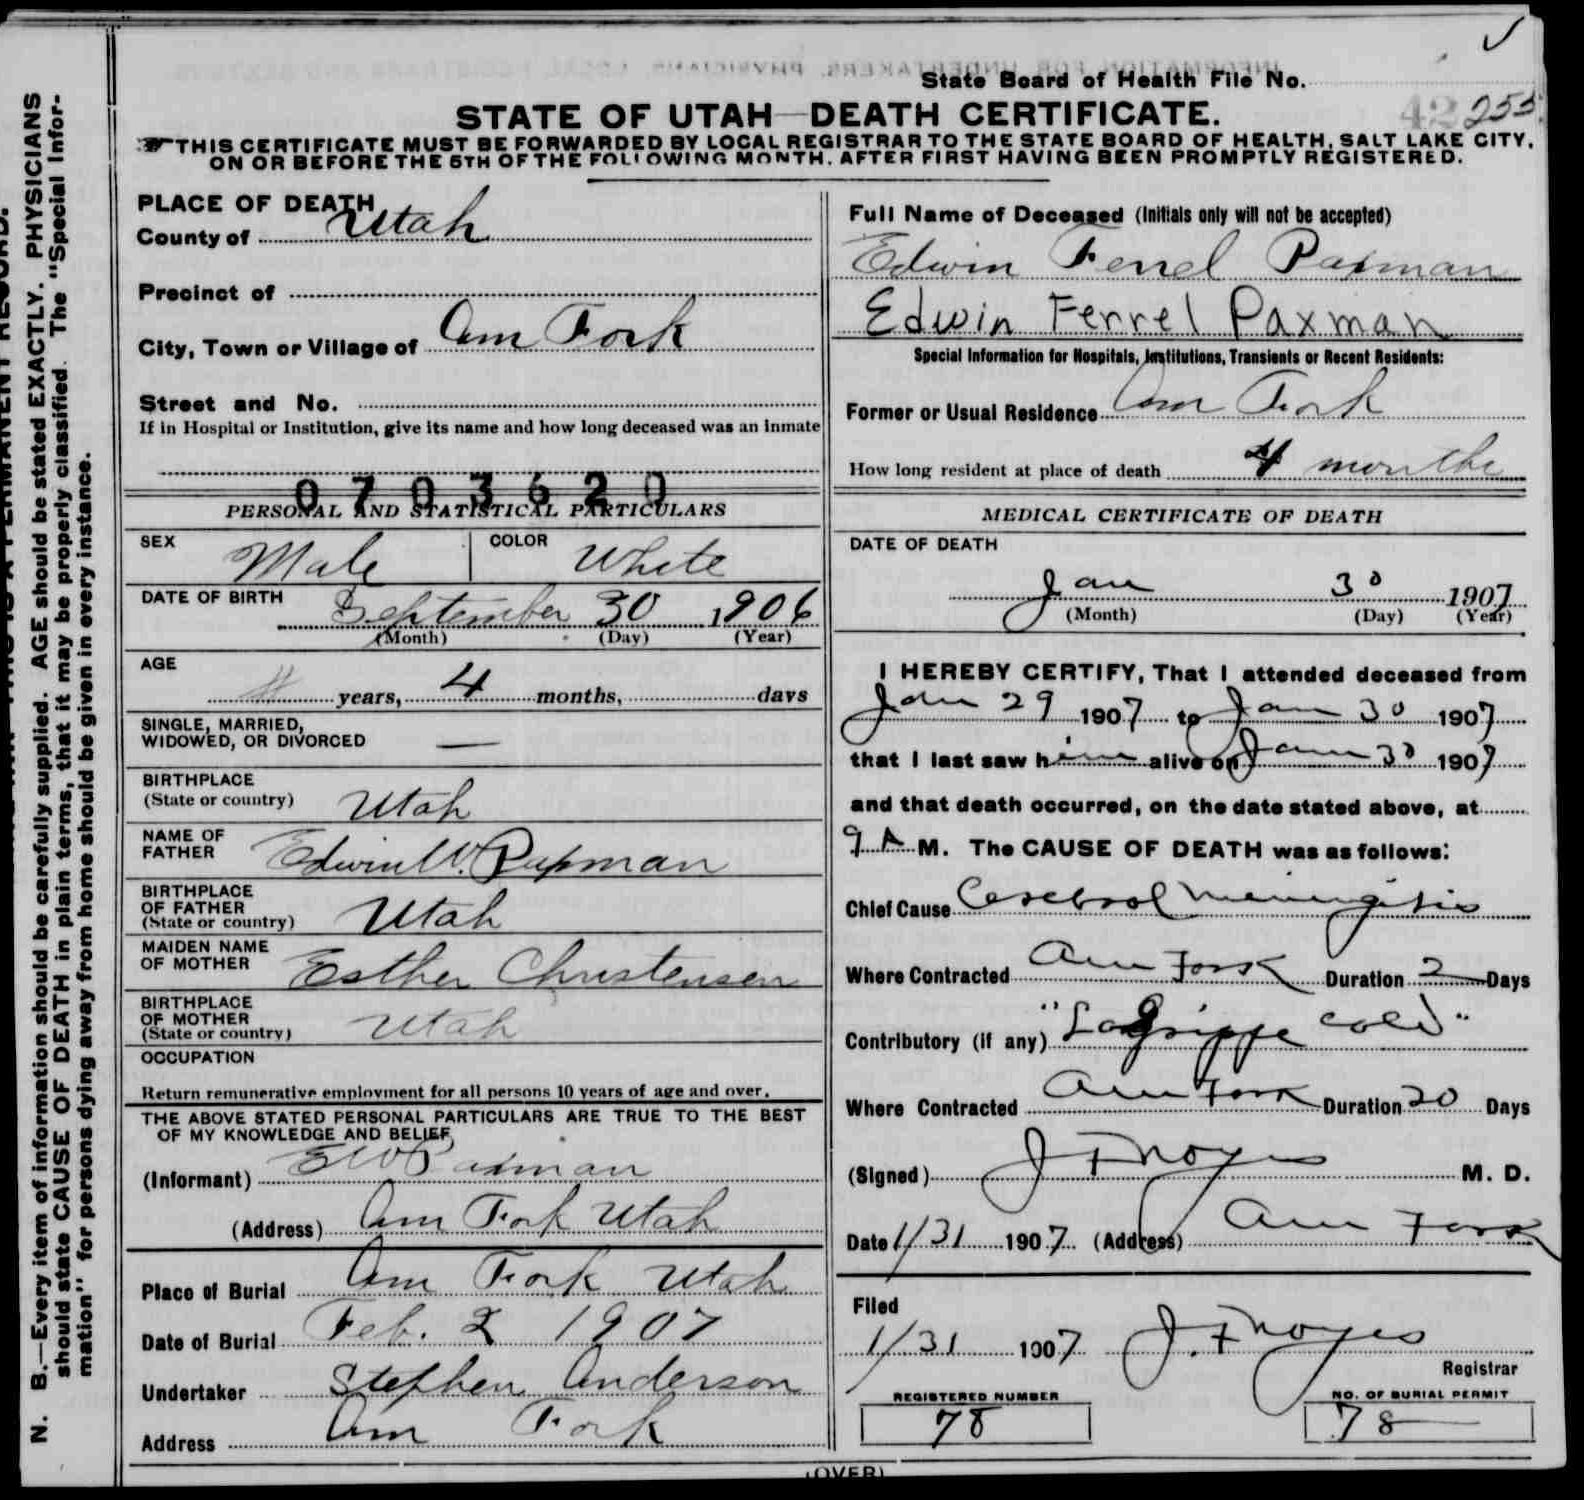 State Board of Health File No. 255
STATE OF UTAH—DEATH CERTIFICATE.
THIS CERTIFICATE MUST BE FORWARDED BY LOCAL REGISTRAR TO THE STATE BOARD OF HEALTH, SALT LAKE CITY,
ON OR BEFORE THE 5TH OF THE FOLLOWING MONTH, AFTER FIRST HAVING BEEN PROMPTLY REGISTERED.
N. B.—Every item of information should be carefully supplied. AGE should be stated EXACTLY. PHYSICIANS
should state CAUSE OF DEATH in plain terms, that it may be properly classified. The "Special Infor-
mation" for persons dying away from home should be given in every instance.
PLACE OF DEATH
County of Utah
Precinct of
City, Town or Village of Am Fork
Street and No.
If in Hospital or Institution, give its name and how long deceased was an inmate
0703620
PERSONAL AND STATISTICAL PARTICULARS
SEX Male COLOR White
DATE OF BIRTH September 30 1906
(Month) (Day) (Year)
AGE
years, 4 months, days
SINGLE, MARRIED,
WIDOWED, OR DIVORCED —
BIRTHPLACE
(State or country) Utah
NAME OF
FATHER Edwin W. Paxman
BIRTHPLACE
OF FATHER
(State or country) Utah
MAIDEN NAME
OF MOTHER Esther Christensen
BIRTHPLACE
OF MOTHER
(State or country) Utah
OCCUPATION
Return remunerative employment for all persons 10 years of age and over.
THE ABOVE STATED PERSONAL PARTICULARS ARE TRUE TO THE BEST
OF MY KNOWLEDGE AND BELIEF
(Informant) E W Paxman
(Address) Am Fork Utah
Place of Burial Am Fork Utah
Date of Burial Feb. 2 1907
Undertaker Stephen Anderson
Address Am Fork
Full Name of Deceased (Initials only will not be accepted)
Edwin Ferrel Paxman
Edwin Ferrel Paxman
Special Information for Hospitals, Institutions, Transients or Recent Residents:
Former or Usual Residence Am Fork
How long resident at place of death 4 months
MEDICAL CERTIFICATE OF DEATH
DATE OF DEATH
Jan 30 1907
(Month) (Day) (Year)
I HEREBY CERTIFY, That I attended deceased from
Jan 29 1907 to Jan 30 1907
that I last saw him alive on Jan 30 1907
and that death occurred, on the date stated above, at
9 A M. The CAUSE OF DEATH was as follows:
Chief Cause Cerebral Meningitis
Where Contracted Am Fork Duration 2 Days
Contributory (if any) "La grippe cold"
Where Contracted Am Fork Duration 20 Days
(Signed) J F Noyes M. D.
Date 1/31 1907 (Address) Am Fork
Filed
1/31 1907 J. F Noyes
Registrar
REGISTERED NUMBER
78
NO. OF BURIAL PERMIT
78
(OVER)